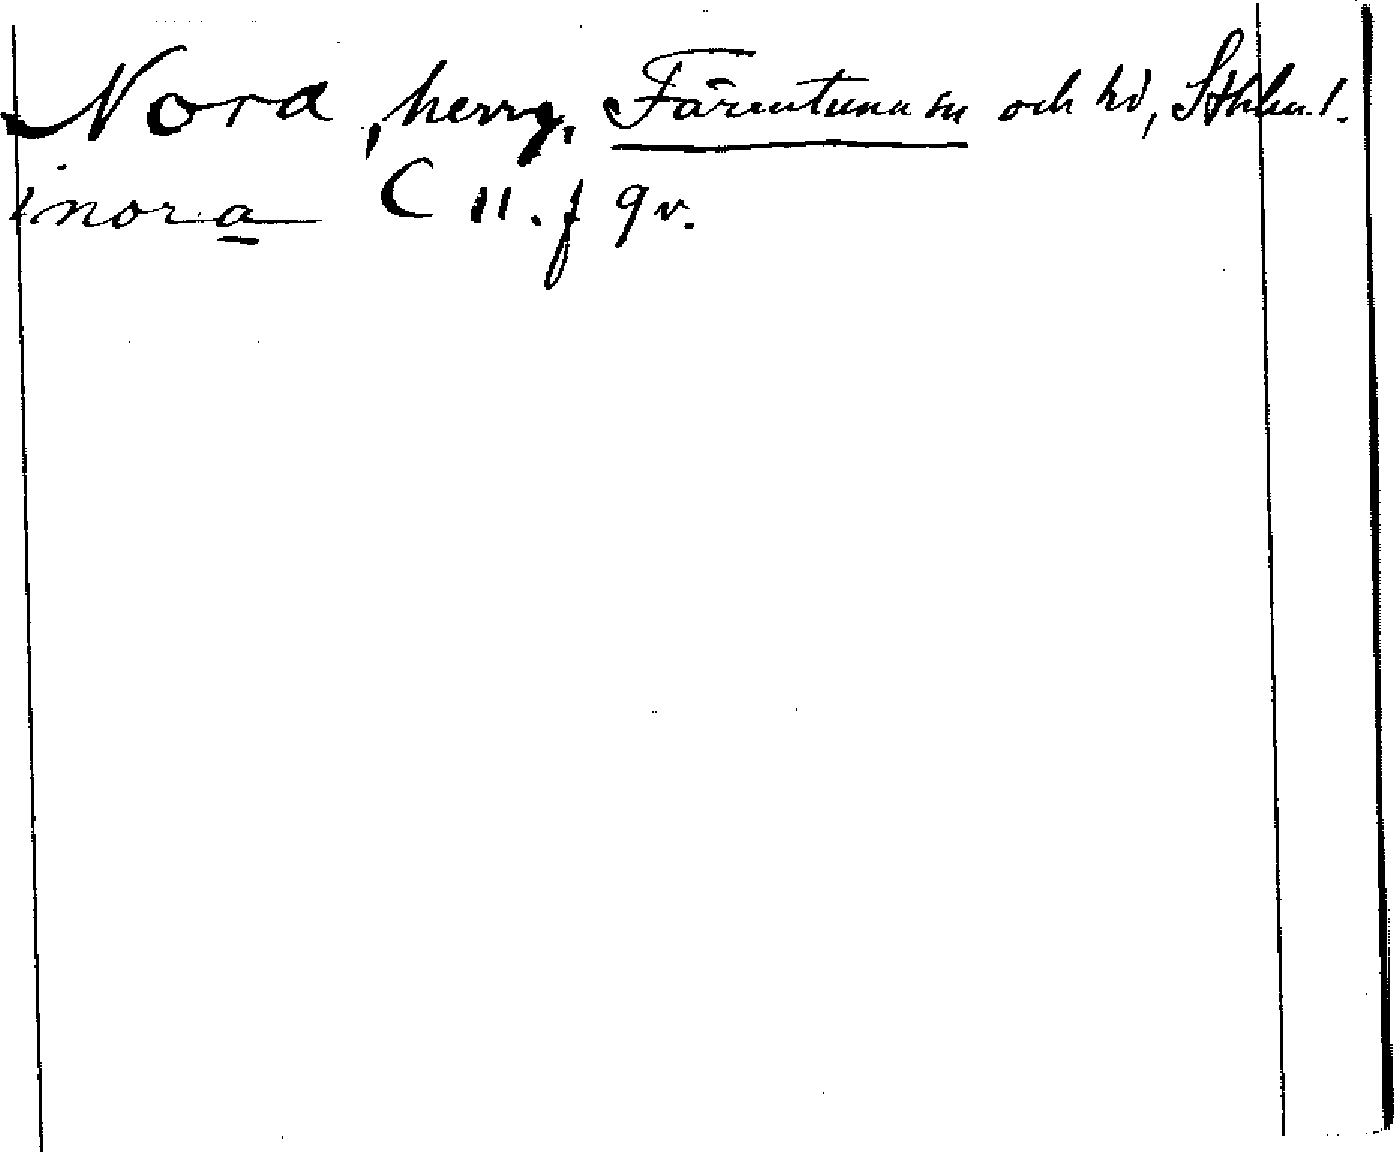 Nora, herrg. Färentuna sn och hd, Sthlm l.
i nora C 11. f 9 v.